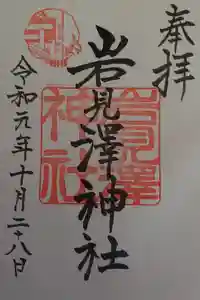 奉拝
岩見澤神社
岩見澤
神社
令和元年十月二十八日